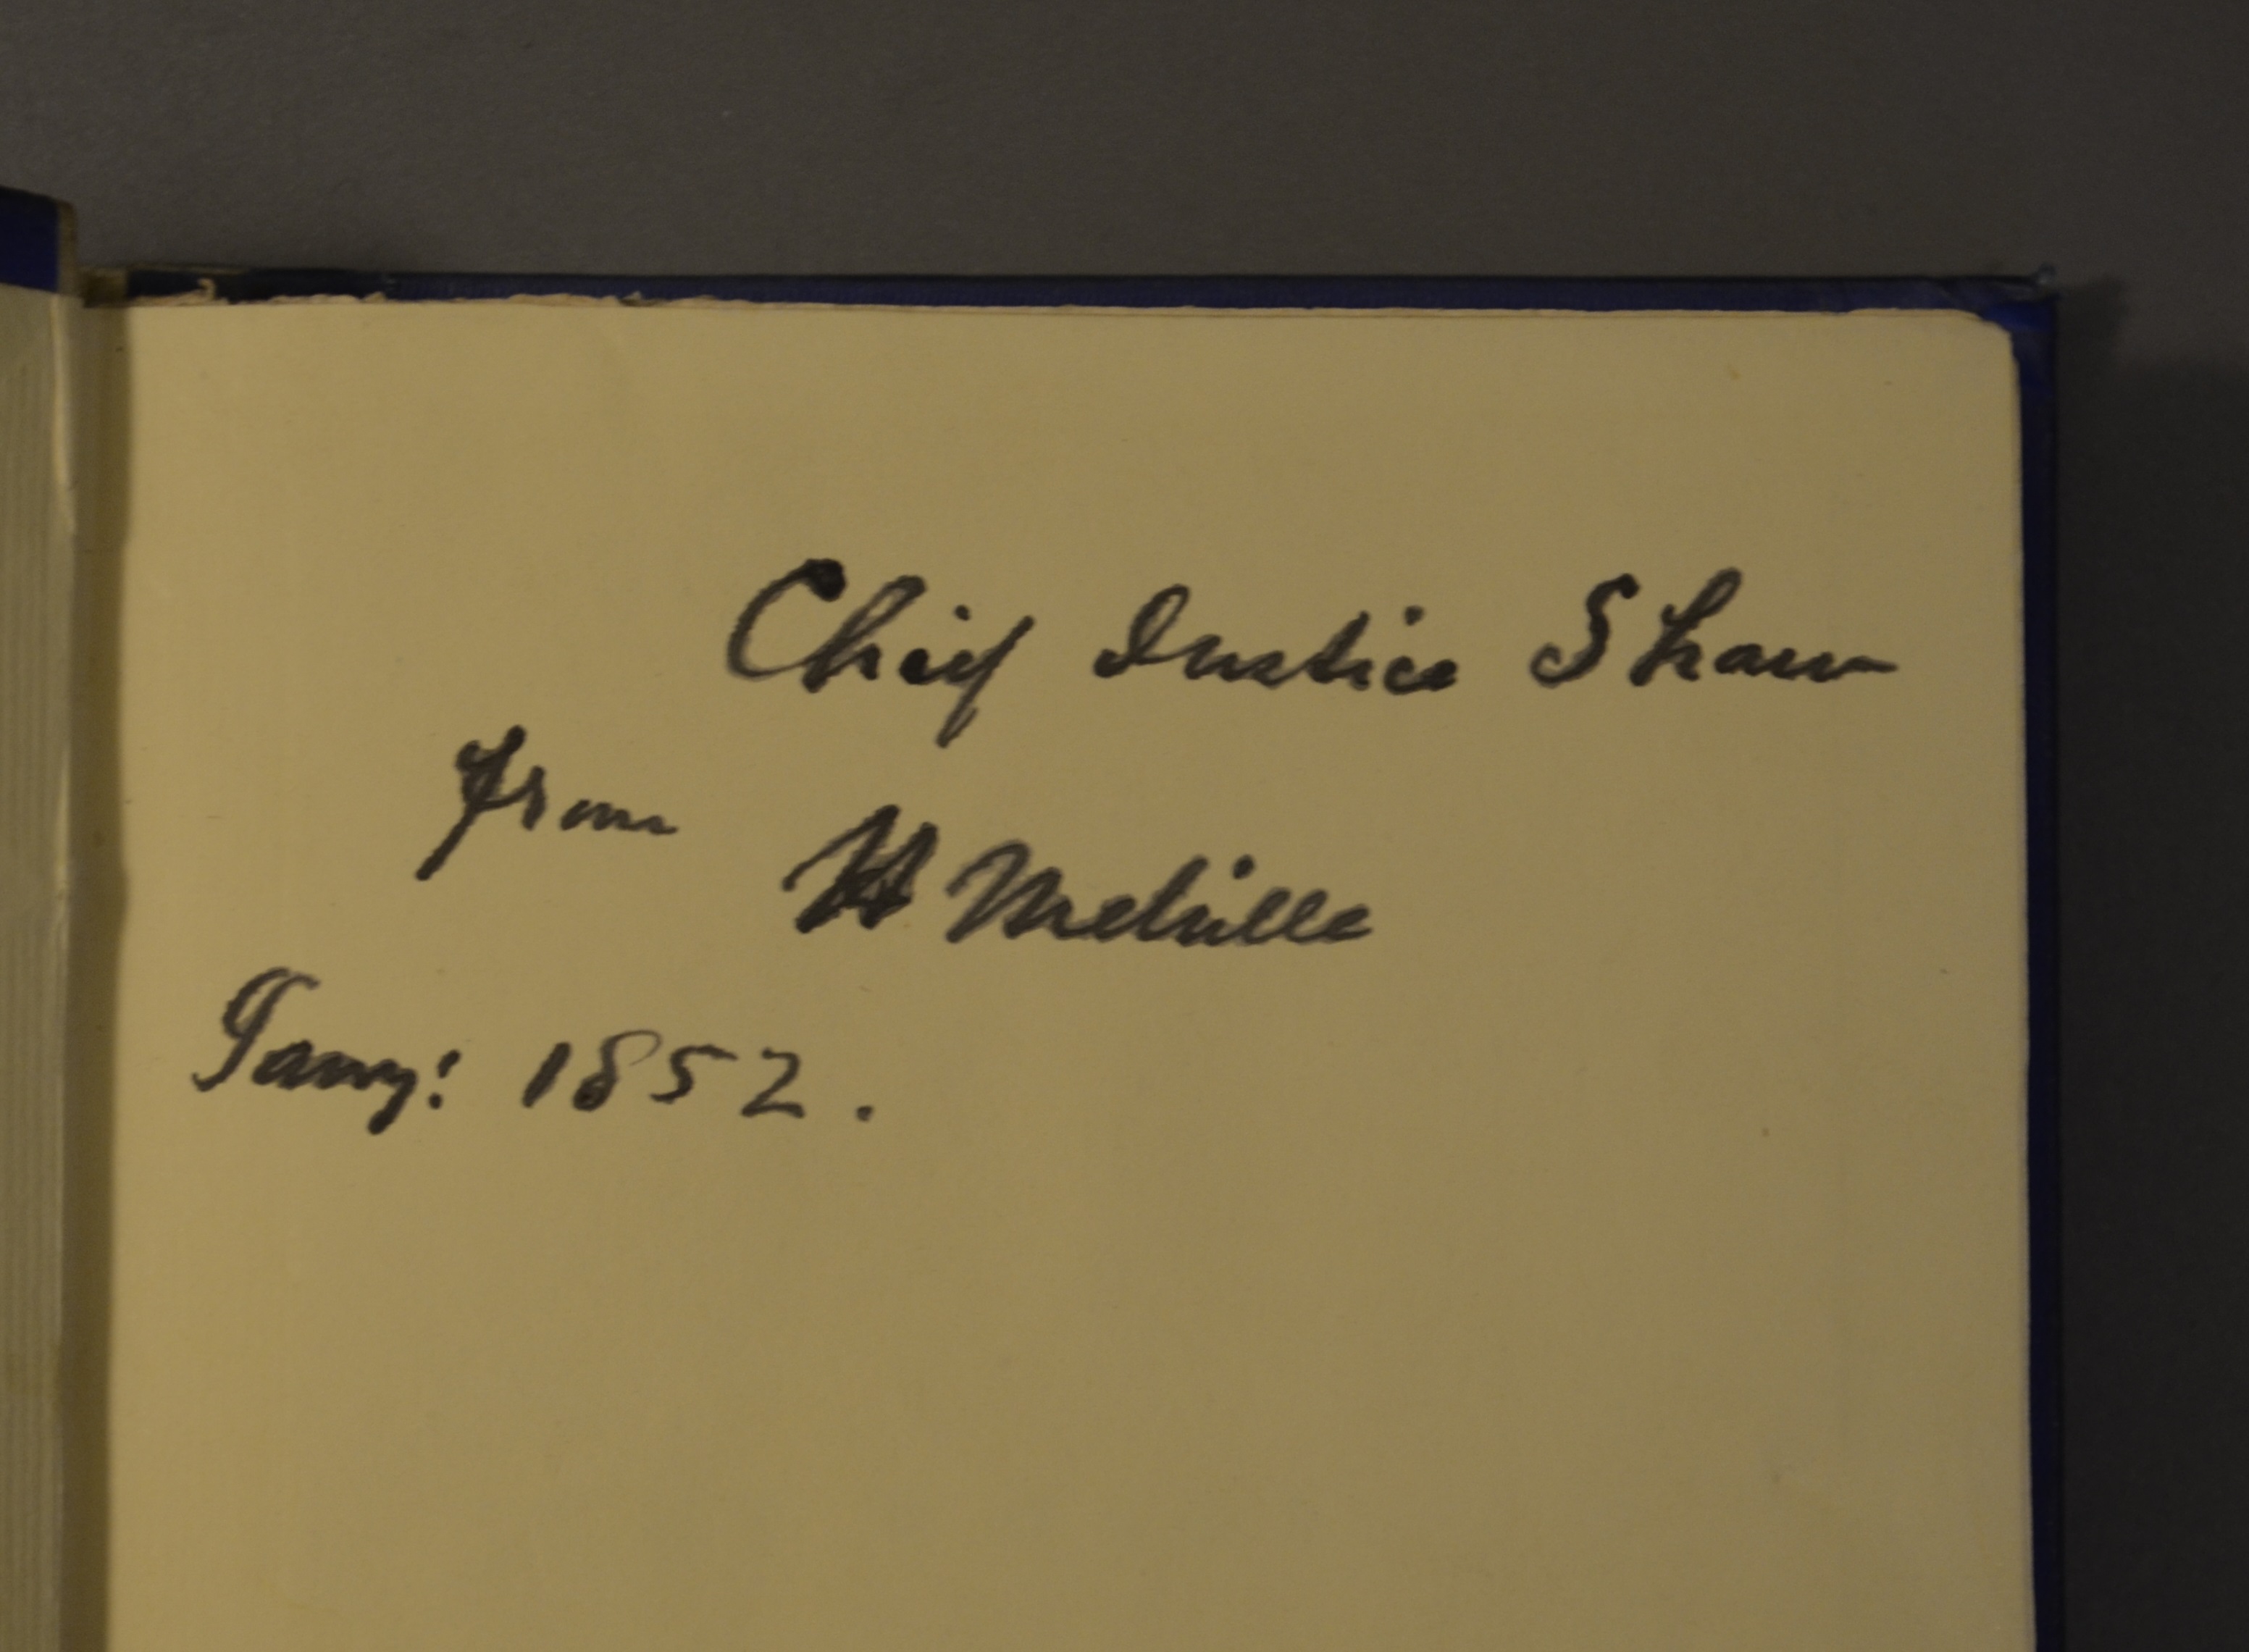 Chief Justice Shaw
from
H Melville
Jany: 1852.